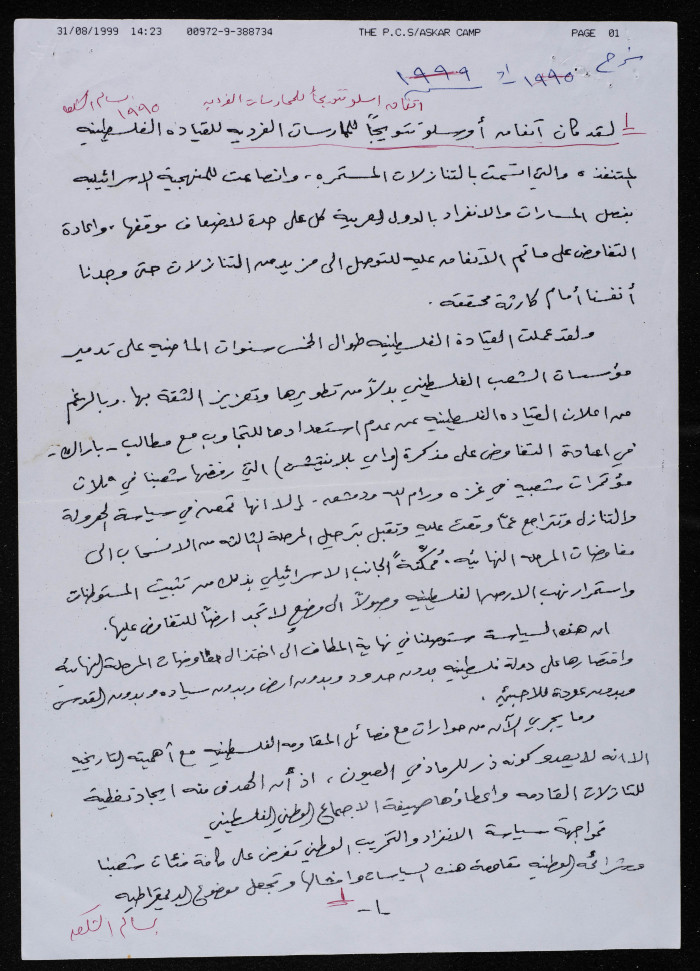 31/08/1999 14:23 00972-9-388734 THE P.C.S/ASKAR CAMP PAGE 01
١٩٩٥ ١٩٩٩
اتفاق اوسلو تتويجاً للممارسات الفردية
١٩٩٥
لقد كان اتفاق أوسلو تتويجاً للممارسات الفردية للقيادة الفلسطينية
المتنفذة، والتي اتسمت بالتنازلات المستمرة، وانصاعت للمنهجية الاسرائيلية
بفصل المسارات والانفراد بالدول العربية كل على حدة لاضعاف موقفها، واعادة
التفاوض على ما تم الاتفاق عليه للتوصل الى مزيد من التنازلات حتى وجدنا
أنفسنا أمام كارثة محققة.
ولقد عملت القيادة الفلسطينية طوال الخمس سنوات الماضية على تدمير
مؤسسات الشعب الفلسطيني بدلاً من تطويرها وتعزيز الثقة بها. وبالرغم
من اعلان القيادة الفلسطينية عن عدم استعدادها للتجاوب مع مطالب - باراك -
في اعادة التفاوض على مذكرة (واي بلانتيشن) التي رفضها شعبنا في ثلاث
مؤتمرات شعبية في غزة ورام الله ودمشق. إلا انها تمعن في سياسة الهرولة
والتنازل وتتراجع عمّا وقعت عليه وتقبل بترحيل المرحلة الثالثة من الانسحاب الى
مفاوضات المرحلة النهائية، مُمكّنةً الجانب الاسرائيلي بذلك من تثبيت المستوطنات
واستمرار نهب الارض الفلسطينية وصولاً الى وضع لا تجد ارضاً للتفاوض عليها.
ان هذه السياسة ستوصلنا في نهاية المطاف الى اختزال مفاوضات المرحلة النهائية
واقتصارها على دولة فلسطينية بدون حدود وبدون ارض وبدون سيادة وبدون القدس
وبدون عودة للاجئين.
وما يجري الآن من حوارات مع فصائل المقاومة الفلسطينية مع أهميته التاريخية
الا انه لا يعدو كونه ذر للرماد في العيون، اذ أن الهدف منه ايجاد تغطية
للتنازلات القادمة واعطاؤها صيغة الاجماع الوطني الفلسطيني
مواجهة سياسة الانفراد والتخريب الوطني تفرض على كافة فئات شعبنا
وشرائحه الوطنية مقاومة هذه السياسات وافشالها وتجعل موضوع الديمقراطية
-١-